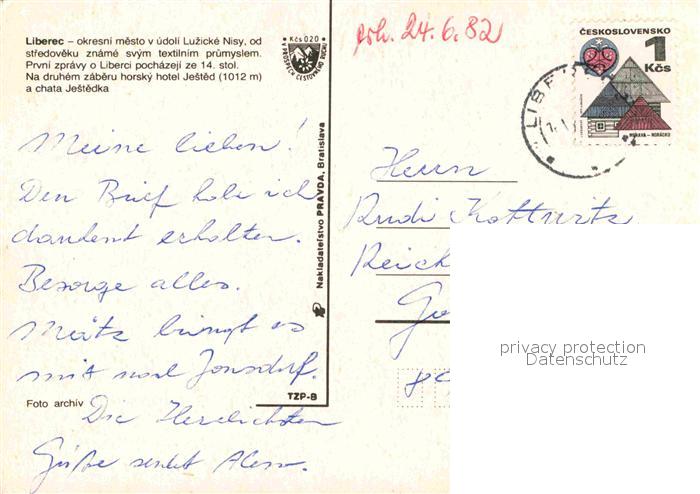 Liberec – okresní město v údolí Lužické Nisy, od
středověku známé svým textilním průmyslem.
První zprávy o Liberci pocházejí ze 14. stol.
Na druhém záběru horský hotel Ještěd (1012 m)
a chata Ještědka
Kčs 020
V PROSPĚCH CESTOVNÍHO RUCHU
erh. 24.6.82
ČESKOSLOVENSKO
1
Kčs
MORAVA - HORÁCKO
LIBEREC
Meine lieben!
Den Brief habe ich
dankend erhalten.
Besorge alles.
bringt es
mit nach Jonsdorf.
Die Herzlichsten
Grüße sendet
Nakladatelství PRAVDA, Bratislava
Foto archív
TZP-8
Herrn
Rudi Kottwitz
Reich
privacy protection
Datenschutz